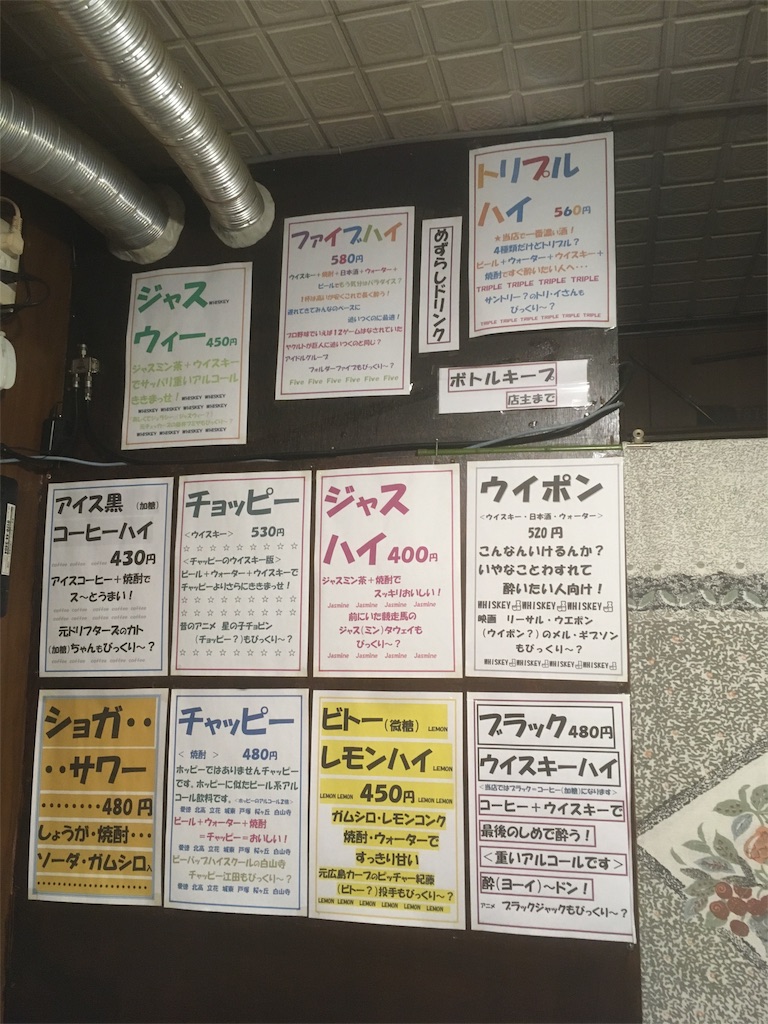 トリプル
ハイ 560円
★当店で一番濃い酒!
4種類だけどトリプル?
ビール+ウォーター+ウイスキー+
焼酎ですぐ酔いたい人へ・・・
TRIPLE TRIPLE TRIPLE TRIPLE
サントリー?のトリ・イさんも
びっくり~?
TRIPLE TRIPLE TRIPLE TRIPLE TRIPLE TRIPLE
めずらしドリンク
ファイブハイ
580円
ウイスキー+焼酎+日本酒+ウォーター+
ビールでもう気分はパラダイス?
1杯は高いが安くこれで長く酔う!
遅れてきてみんなのペースに
追いつくのに最適!
プロ野球でいえば12ゲームはなされていた
ヤクルトが巨人に追いつくのと同じ?
アイドルグループ
フォルダーファイブもびっくり~?
Five Five Five Five Five Five
ジャス WHISKEY
ウィー 450円
ジャスミン茶+ウイスキー
でサッパリ重いアルコール
ききまっせ! WHISKEY WHISKEY
WHISKEY WHISKEY WHISKEY WHISKEY
WHISKEY WHISKEY WHISKEY WHISKEY
ボトルキープ
店主まで
アイス黒 (加糖)
コーヒーハイ
430円
アイスコーヒー+焼酎で
ス~とうまい!
coffee coffee coffee coffee coffee
元ドリフタースのカト
(加糖)ちゃんもびっくり~?
チョッピー
<ウイスキー> 530円
☆ ☆ ☆ ☆ ☆ ☆ ☆ ☆
<チャッピーのウイスキー版>
ビール+ウォーター+ウイスキーで
チャッピーよりさらにききまっせ!
☆ ☆ ☆ ☆ ☆ ☆ ☆ ☆
☆ ☆ ☆ ☆ ☆ ☆ ☆ ☆
昔のアニメ 星の子チョビン
(チョッピー?)もびっくり~?
☆ ☆ ☆ ☆ ☆ ☆ ☆ ☆
ジャス
ハイ 400円
ジャスミン茶+焼酎で
スッキリおいしい!
Jasmine Jasmine Jasmine Jasmine
前にいた競走馬の
ジャス(ミン)タウェイも
びっくり~?
Jasmine Jasmine Jasmine Jasmine
ウイポン
<ウイスキー・日本酒・ウォーター>
520円
こんなんいけるんか?
いやなことわすれて
酔いたい人向け!
WHISKEY WHISKEY WHISKEY
映画 リーサル・ウエポン
(ウイポン?)のメル・ギブソン
もびっくり~?
WHISKEY WHISKEY WHISKEY WHISKEY
ショガ・・
・・サワー
・・・・・・・・480円
しょうが・焼酎・・・
ソーダ・ガムシロ入
チャッピー
< 焼酎 > 480円
ホッピーではありませんチャッピー
です。ホッピーに似たビール系アル
コール飲料です。
愛徳 北高 立花 城東 戸塚 桜ヶ丘 白山寺
ビール+ウォーター+焼酎
=チャッピー=おいしい!
愛徳 北高 立花 城東 戸塚 桜ヶ丘 白山寺
ビーバップハイスクールの白山寺
チャッピー江田もびっくり~?
愛徳 北高 立花 城東 戸塚 桜ヶ丘 白山寺
ビトー(微糖) LEMON
レモンハイ LEMON
LEMON LEMON 450円 LEMON LEMON
ガムシロ・レモンコンク
焼酎・ウォーターで
すっきり甘い
元広島カープのピッチャー紀藤
(ビトー?)投手もびっくり~?
LEMON LEMON LEMON LEMON LEMON LEMON
ブラック480円
ウイスキーハイ
<当店ではブラック=コーヒー(加糖)になります>
コーヒー+ウイスキーで
最後のしめで酔う!
<重いアルコールです>
酔(ヨーイ)~ドン!
アニメ ブラックジャックもびっくり~?